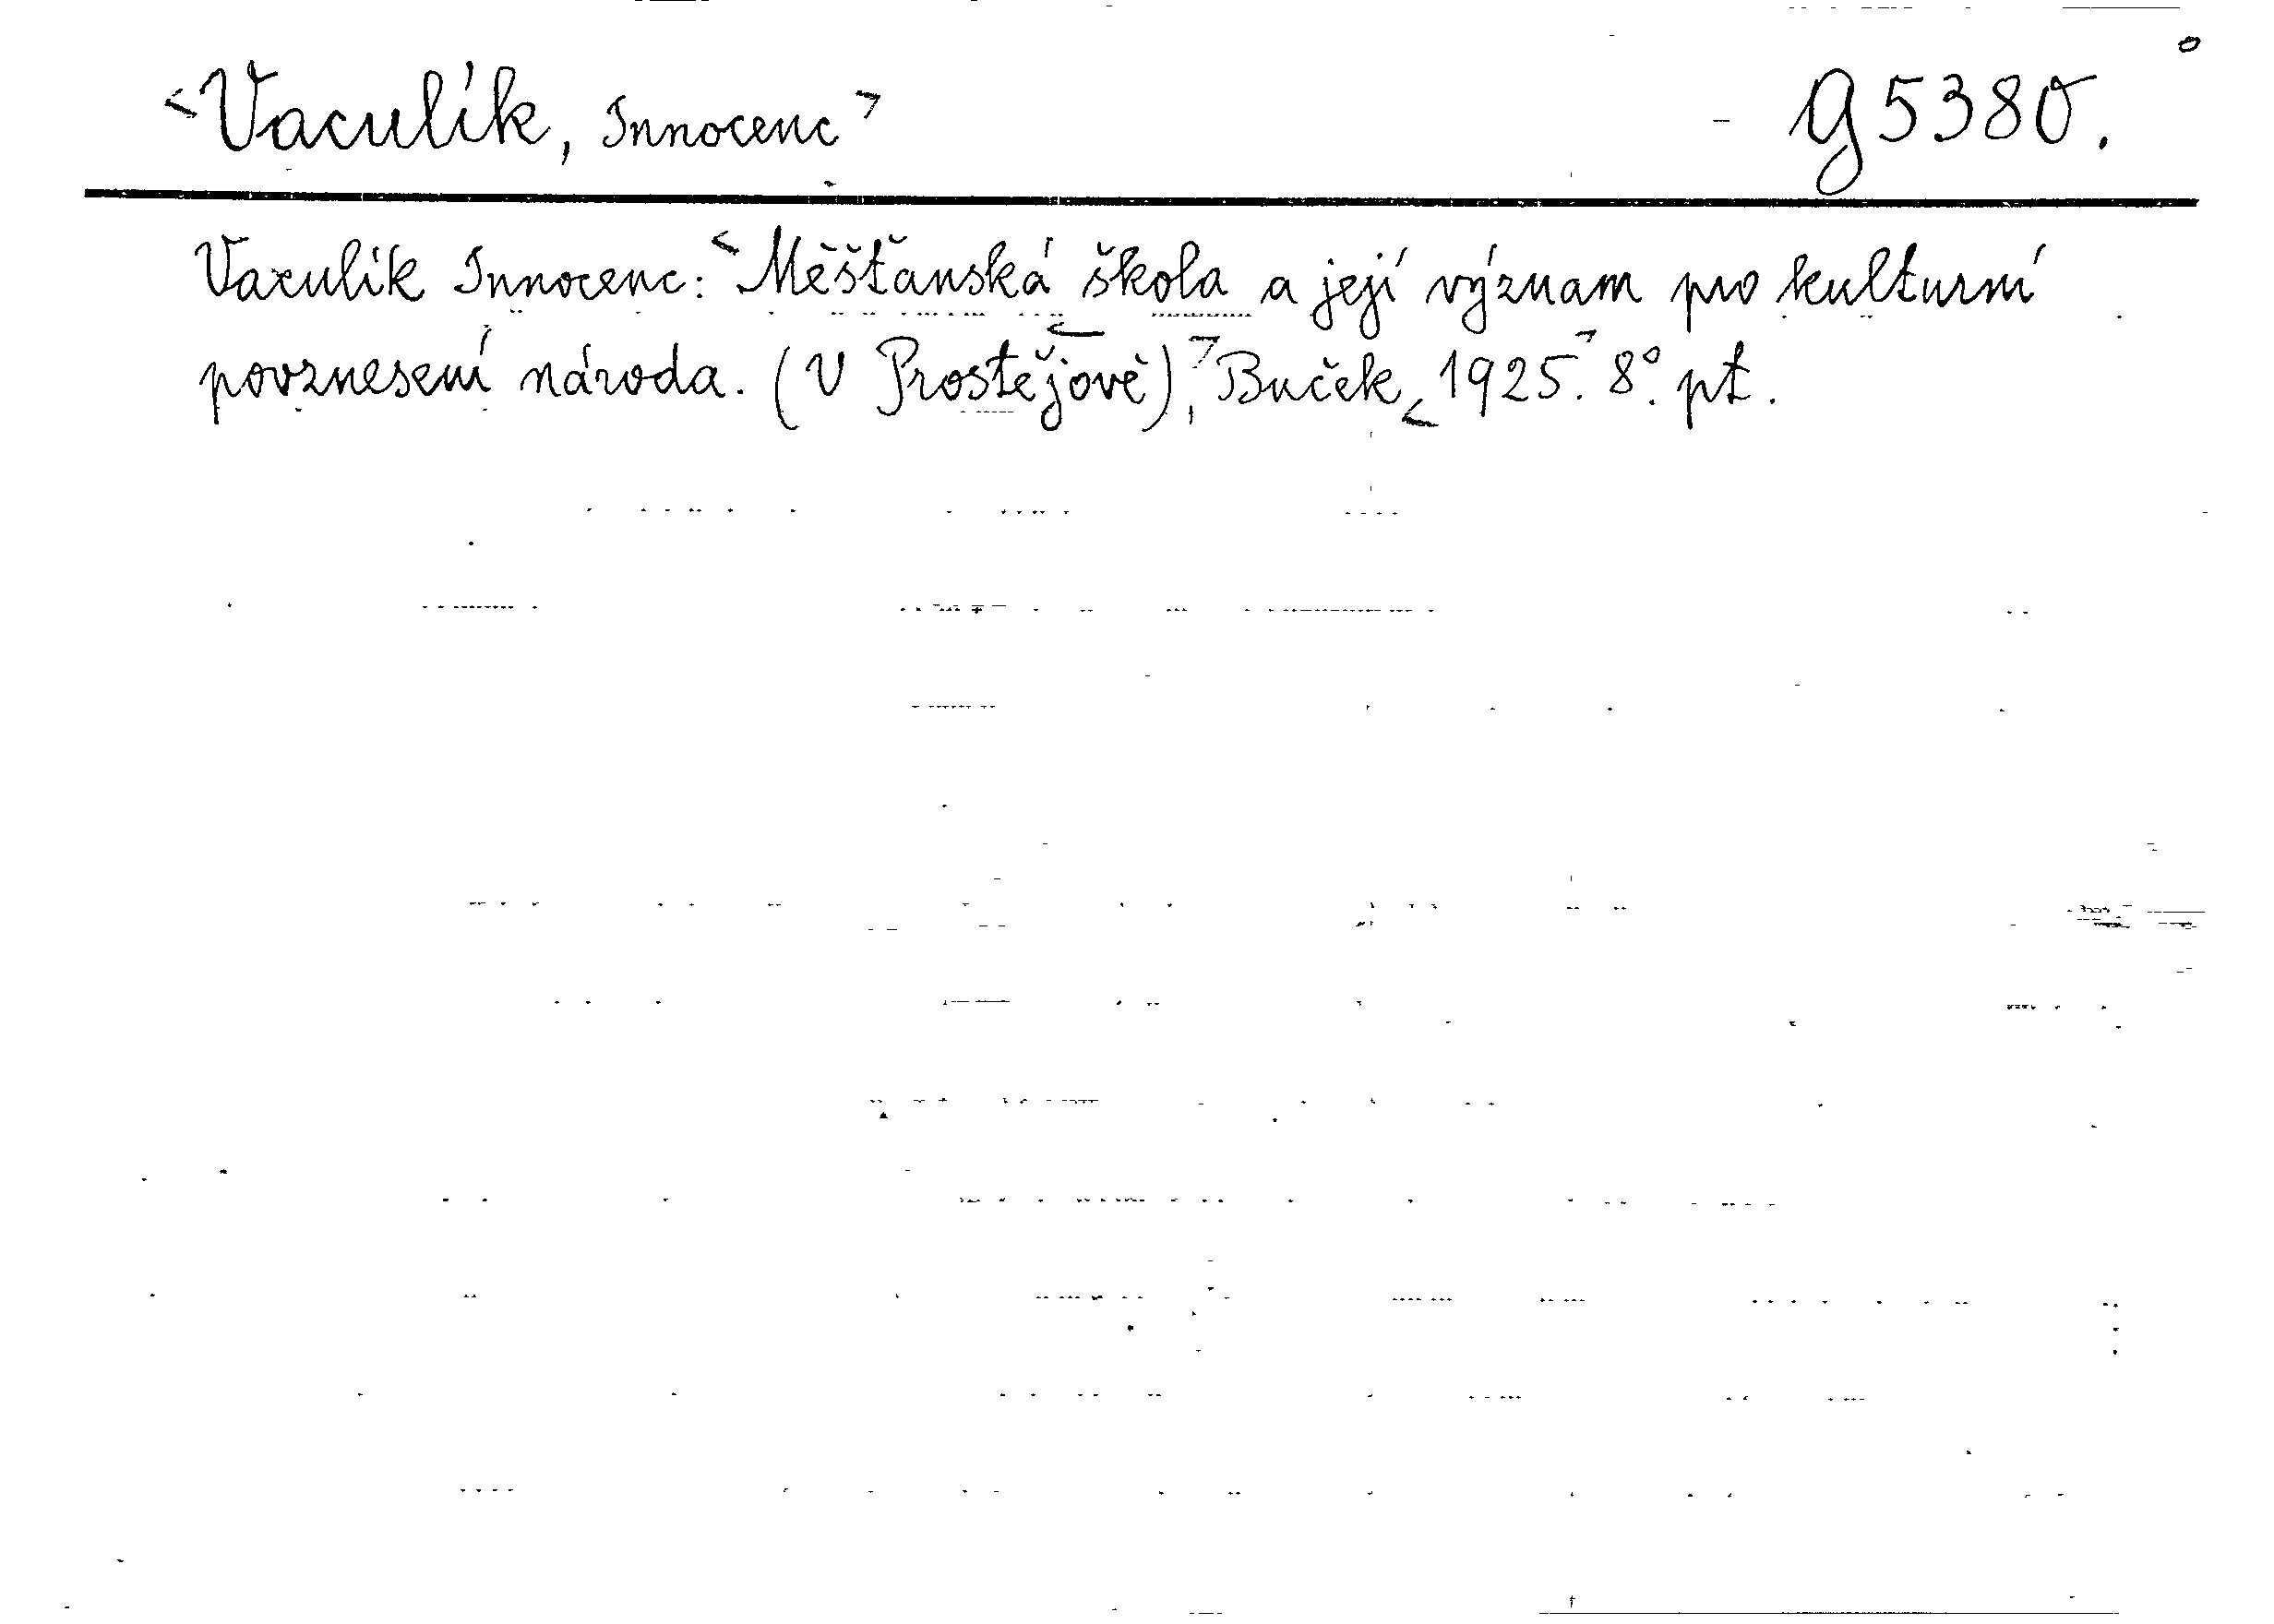 <Vaculík, Innocenc> g 5380.
Vaculík Innocenc: <Měšťanská škola a její význam pro kulturní
povznesení národa. (V Prostějově),> Buček <1925.> 8°. pt.